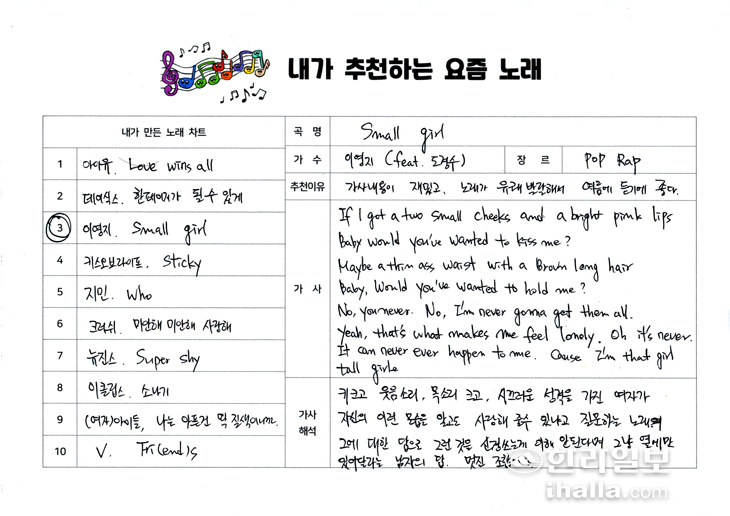 내가 추천하는 요즘 노래
내가 만든 노래 차트
1 아이유. Love wins all
2 데이식스. 한페이지가 될 수 있게
3 이영지. Small girl
4 키스오브라이프. Sticky
5 지민. Who
6 크러쉬. 미안해 미안해 사랑해
7 뉴진스. Super shy
8 이클립스. 소나기
9 (여자)아이들, 나는 아픈건 딱 질색이니까.
10 V. Fri(end)s
곡 명 Small girl
가 수 이영지 (feat. 도경수) 장 르 POP Rap
추천이유 가사내용이 재밌고, 노래가 유쾌 발랄해서 여름에 듣기에 좋다.
가 사
If I got a two small cheeks and a bright pink lips
Baby would you've wanted to kiss me?
Maybe a thin ass waist with a Brown long hair
Baby, Would you've wanted to hold me?
No, you never. No, I'm never gonna get them all.
Yeah, that's what makes me feel lonely. Oh it's never.
It can never ever happen to me. Cause I'm that girl
tall girl
가사 해석
키크고 웃음소리, 목소리 크고, 시끄러운 성격을 가진 여자가
자신의 이런 모습을 알고도 사랑해 줄수 있냐고 질문하는 노래
그에 대한 답으로 그런 것을 신경쓰는게 이해 안된다며 그냥 옆에만
있어달라는 남자의 답. 멋진
한라일보
ihalla.com